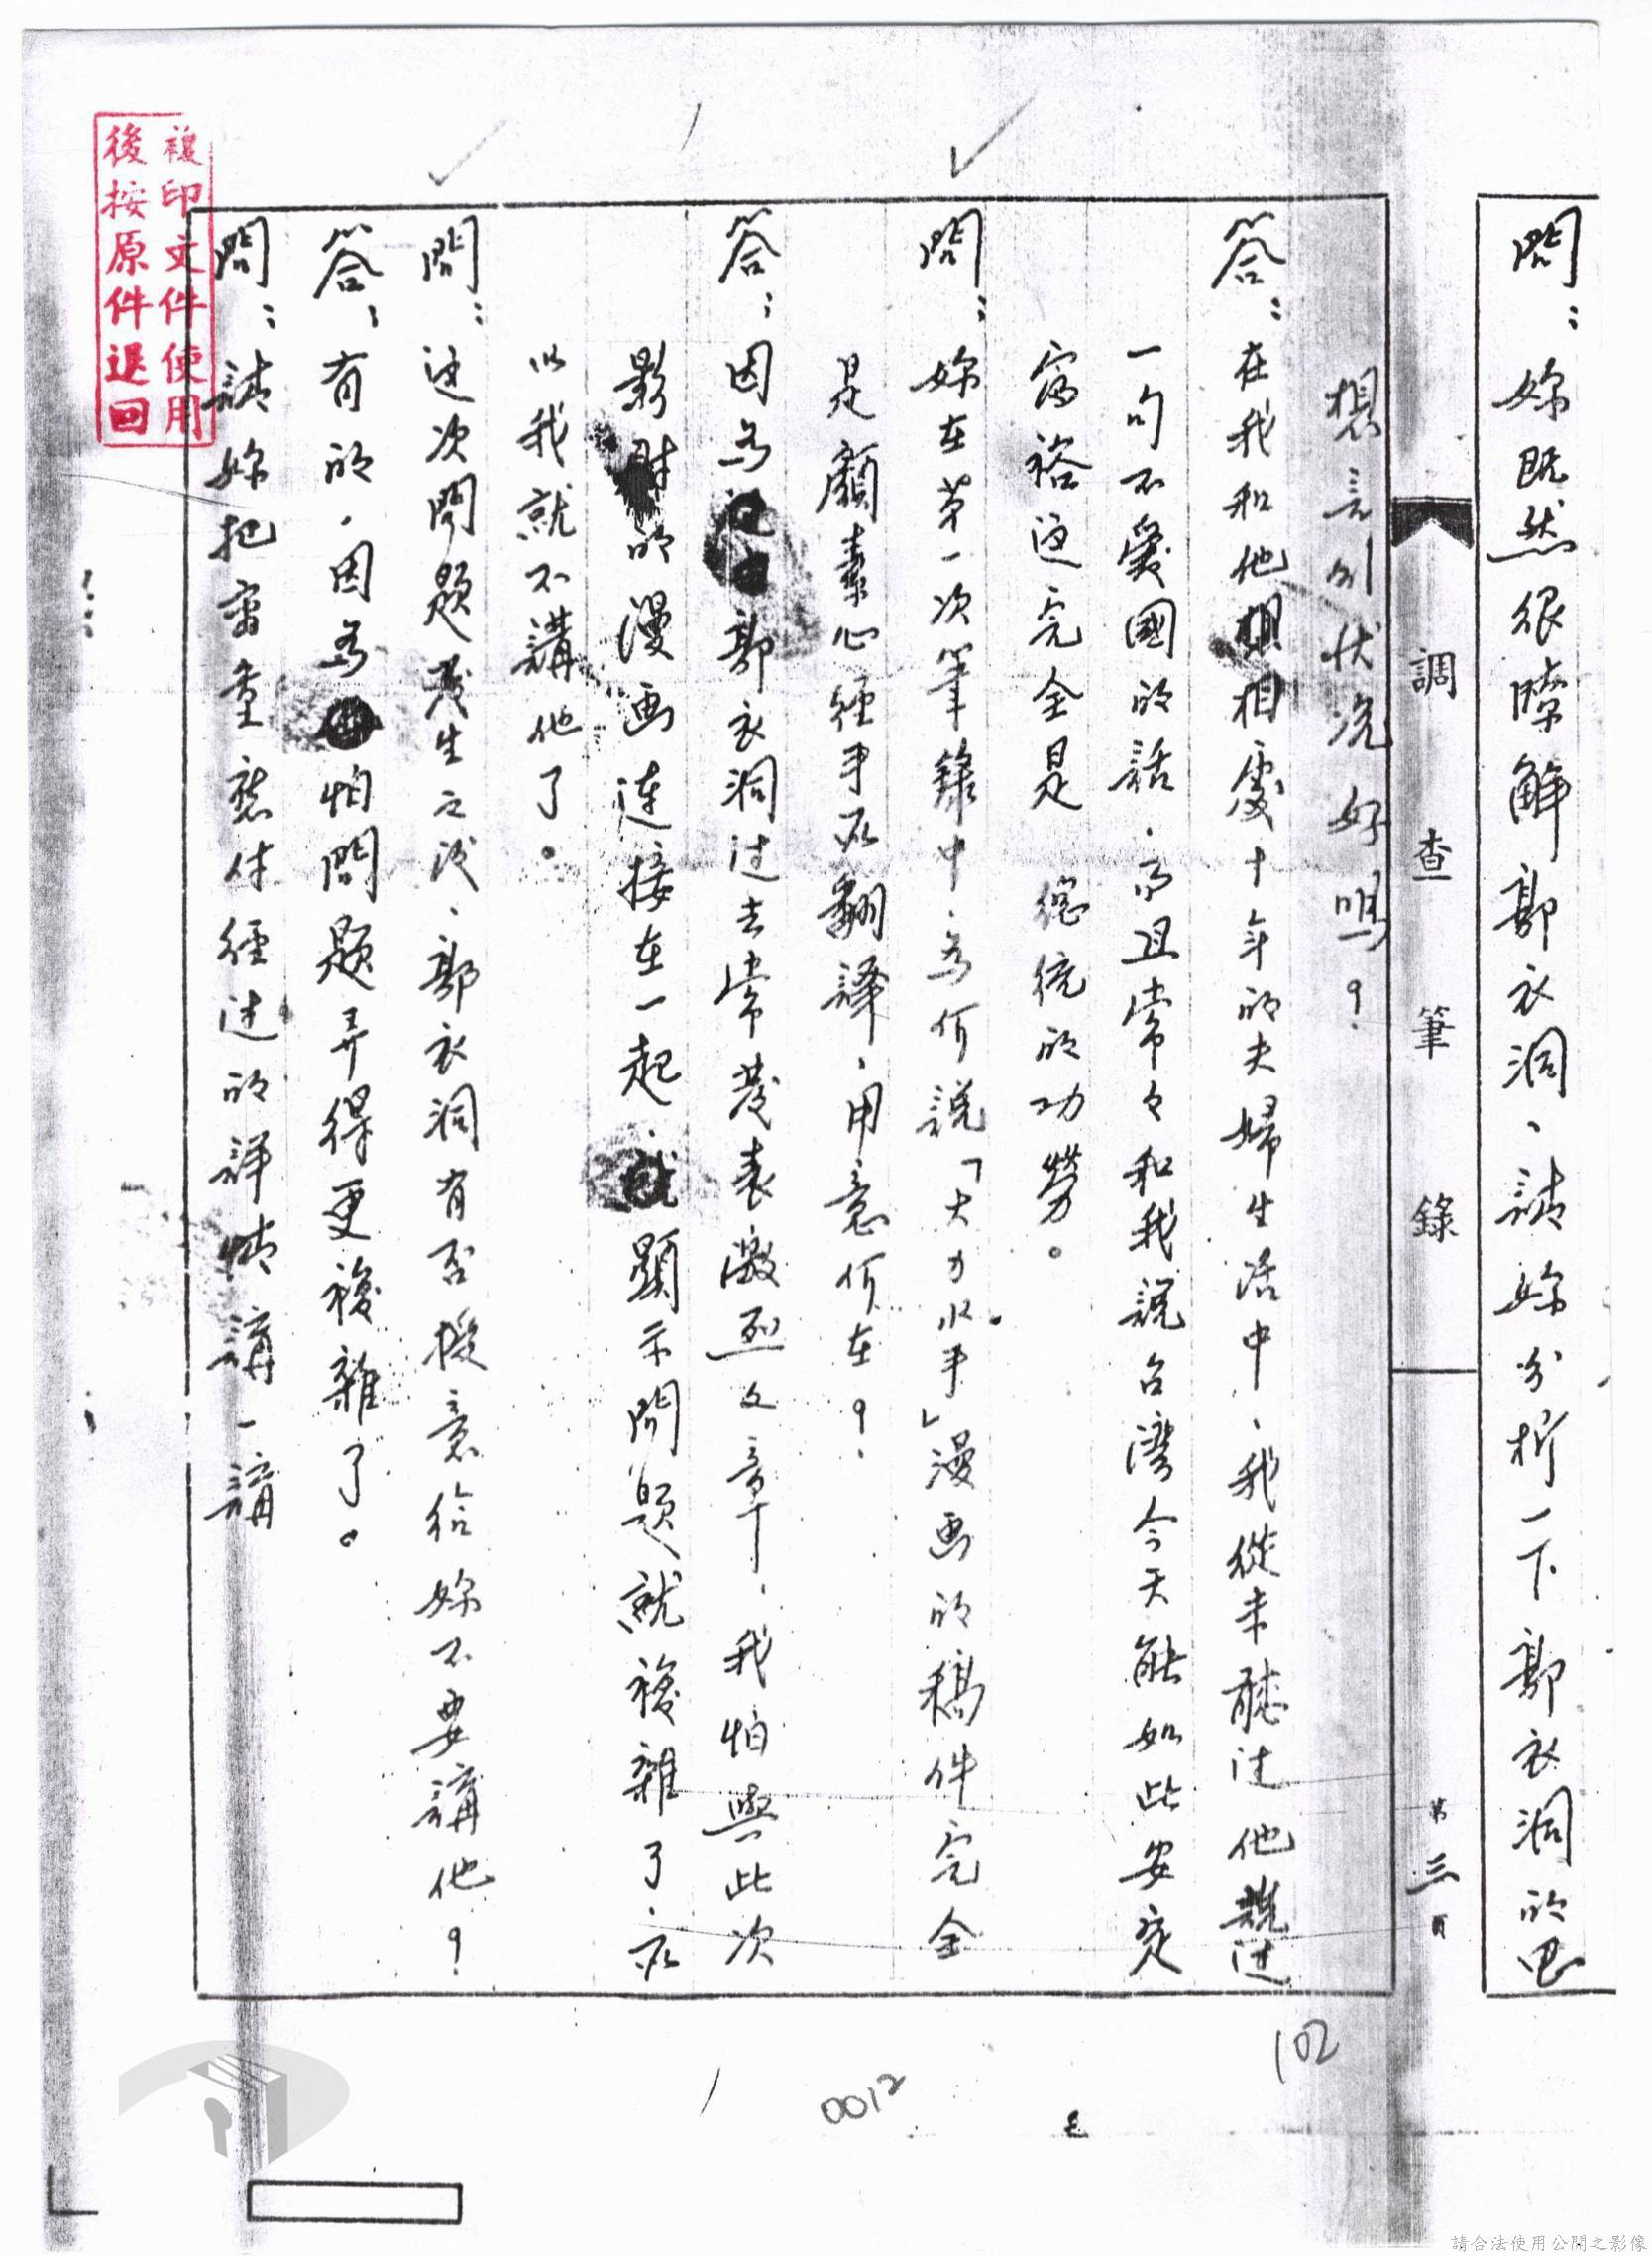 問:妳既然很瞭解郭衣洞、請妳分析一下郭衣洞的思
調查筆錄
第三頁
想言行狀況好嗎?
答:在我和他相處十年的夫婦生活中、我從未聽过他說过
一句不愛國的話、而且常々和我說台湾今天能如此安定
富裕这完全是 總統的功勞。
問:妳在第一次筆錄中、為何說「大力水手」漫画的稿件完全
是顧素心經手及翻譯、用意何在?
答:因為郭衣洞过去常發表激烈文章、我怕與此次
影射的漫画連接在一起、顯示問題就複雜了、所
以我就不講他了。
問:这次問題發生之後、郭衣洞有否授意給妳不要講他?
答:有的、因為怕問題弄得更複雜了。
問:請妳把審查應付經过的詳情講一講
複印文件使用
後按原件退回
102
0012
請合法使用公開之影像